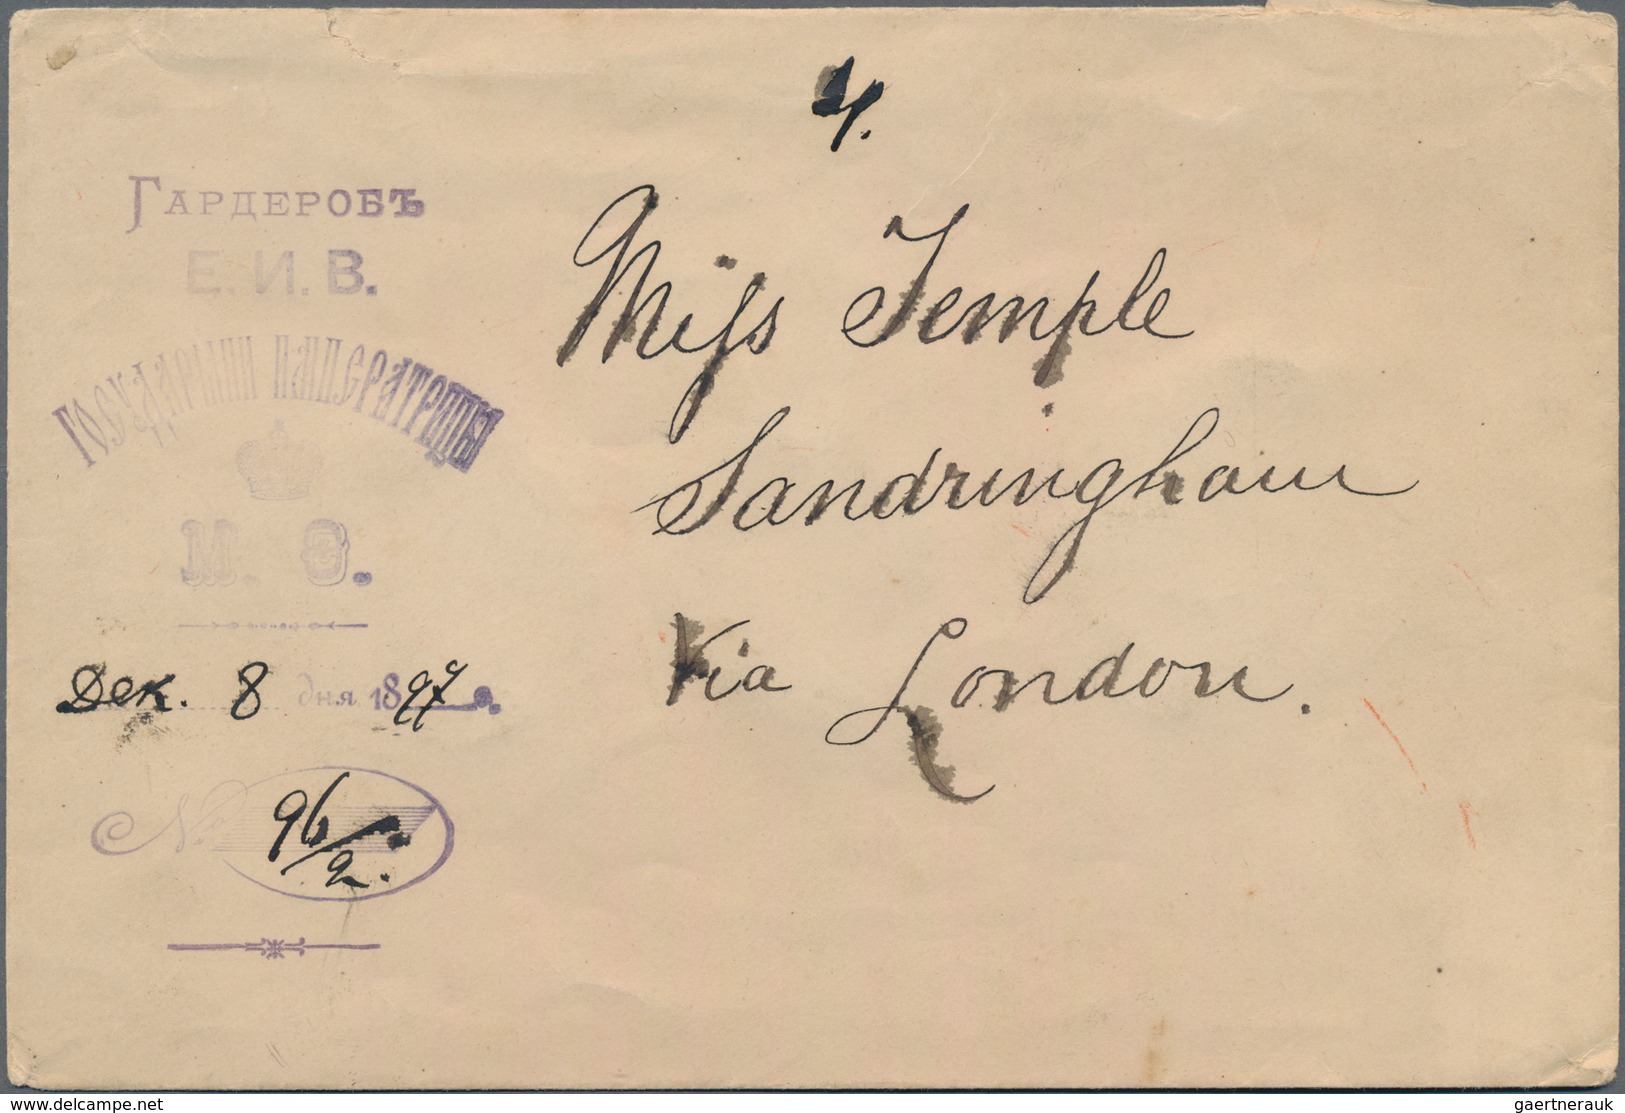 4.
Гардеробъ
Е. И. В.
Государыни Императрицы
М. Ѳ.
Дек. 8 дня 1897 г.
№ 96/2.
Miss Temple
Sandringham
Via London.
www.delcampe.net
gaertnerauk